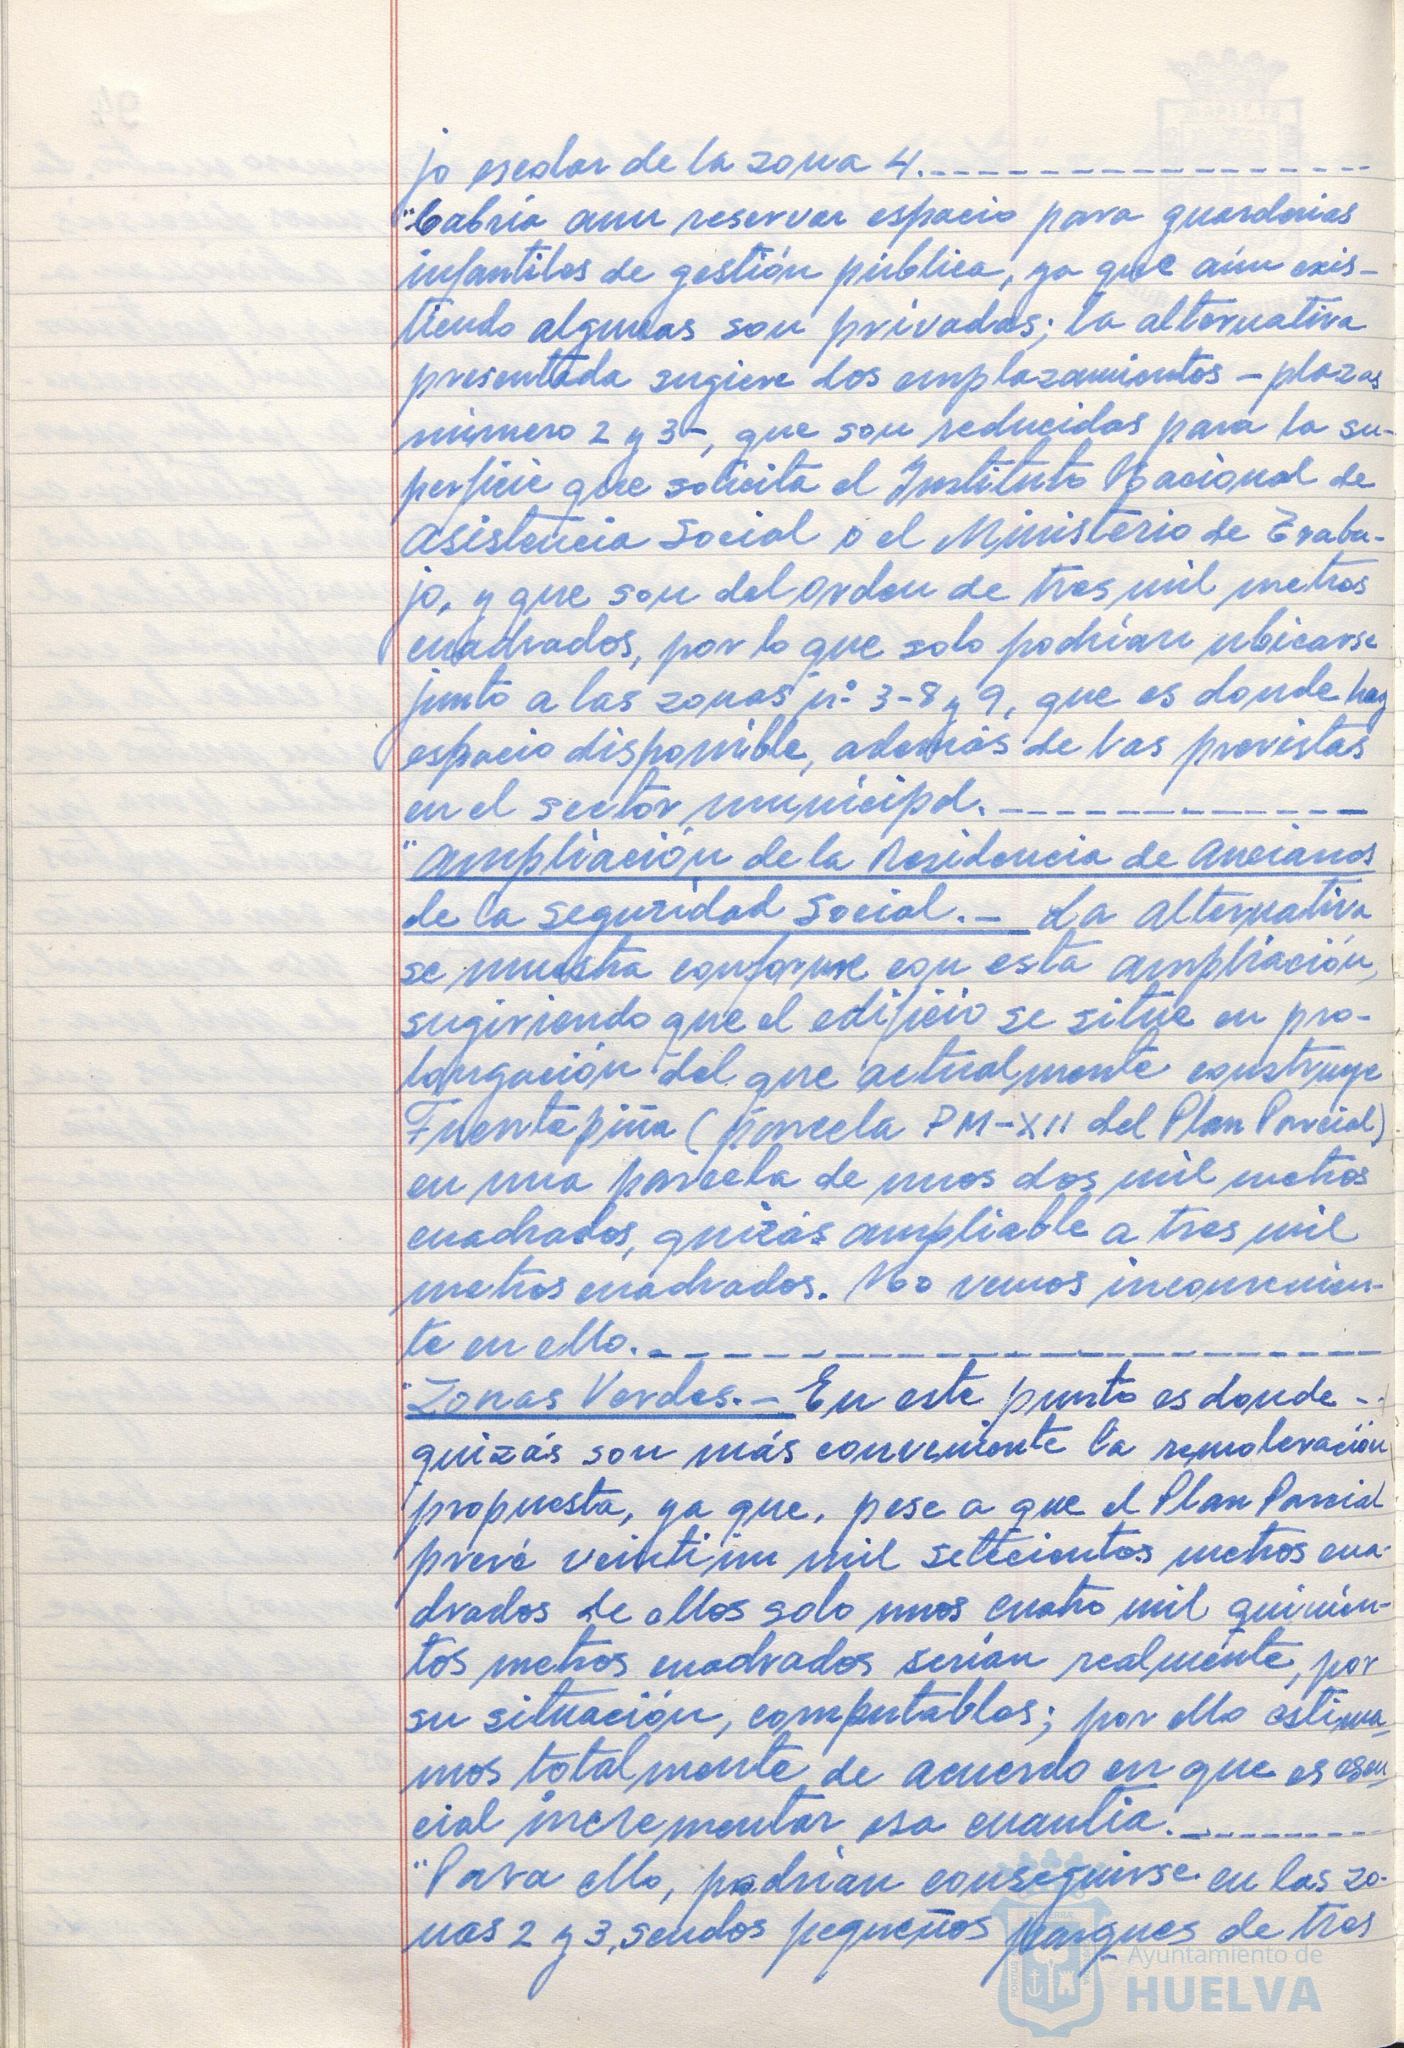 jo escolar de la zona 4.
"Cabría aun reservar espacio para guarderias
infantiles de gestión pública, ya que aún exis-
tiendo algunas son privadas; la alternativa
presentada sugiere dos emplazamientos - plazas
número 2 y 3-, que son reducidas para la su-
perficie que solicita el Instituto Nacional de
Asistencia Social o el Ministerio de Traba-
jo, y que son del orden de tres mil metros
cuadrados, por lo que solo podrían ubicarse
junto a las zonas nº 3-8 y 9, que es donde hay
espacio disponible, además de las previstas
en el sector municipal.
"Ampliación de la Residencia de Ancianos
de la Seguridad Social.- La alternativa
se muestra conforme con esta ampliación,
sugiriendo que el edificio se situe en pro-
longación del que actualmente construye
Fuentepiña (parcela PM-XII del Plan Parcial)
en una parcela de unos dos mil metros
cuadrados, quizás ampliable a tres mil
metros cuadrados. No vemos inconvenien-
te en ello.
"Zonas Verdes.- En este punto es donde -
quizás son más conveniente la remolevación
propuesta, ya que, pese a que el Plan Parcial
prevé veintiun mil setecientos metros cua-
drados de ellos solo unos cuatro mil quinien-
tos metros cuadrados serían realmente, por
su situación, computables; por ello estima-
mos totalmente de acuerdo en que es esen-
cial incrementar esa cuantia.
"Para ello, podrían conseguirse en las zo-
nas 2 y 3, sendos pequeños parques de tres
Ayuntamiento de
HUELVA